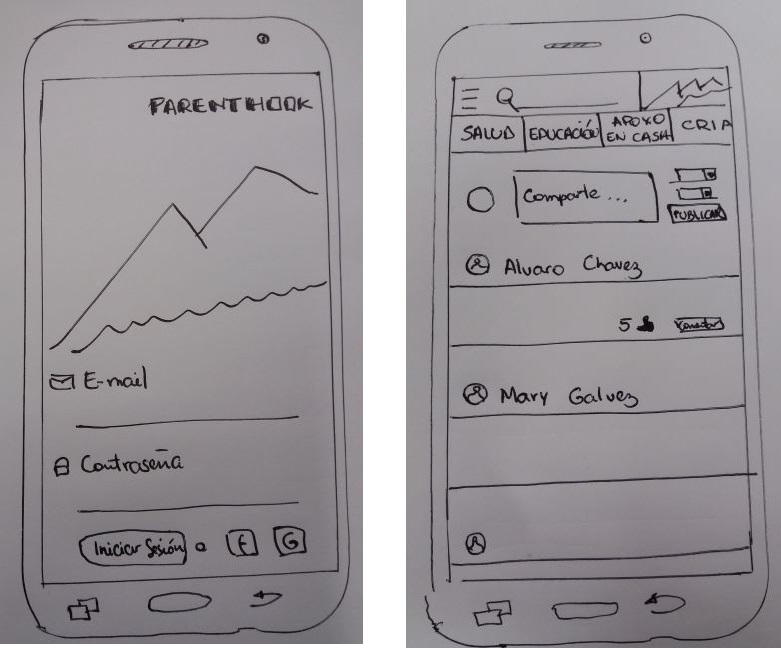 PARENTHOOK
E-mail
Contraseña
Iniciar Sesión o F G
SALUD EDUCACIÓN APOYO EN CASA CRIA
Comparte ...
PUBLICAR
Alvaro Chavez
5
Mary Galvez